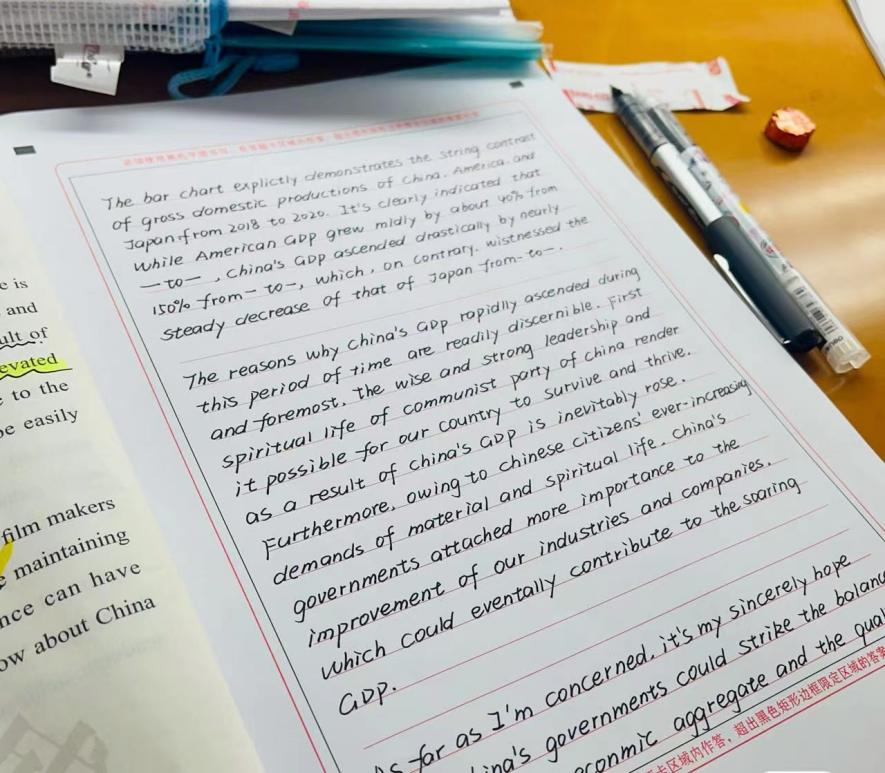 The bar chart explictly demonstrates the string contrast
of gross domestic productions of China, America, and
Japan from 2018 to 2020. It's clearly indicated that
while American GDP grew midly by about 40% from
—to—, China's GDP ascended drastically by nearly
150% from— to—, which, on contrary, wistnessed the
steady decrease of that of Japan from—to—.
The reasons why China's GDP rapidlly ascended during
this period of time are readily discernible. First
and foremost, the wise and strong leadership and
spiritual life of communist party of china render
it possible for our country to survive and thrive.
as a result of China's GDP is inevitably rose.
Furthermore, owing to chinese citizens' ever-increasing
demands of material and spiritual life, China's
governments attached more importance to the
improvement of our industries and companies,
which could eventally contribute to the soaring
GDP.
As far as I'm concerned, it's my sincerely hope
governments could strike the balance
aggregate and the
区域内作答，超出黑色矩形边框限定区域的答案
e is
and
ult of
evated
to the
be easily
film makers
maintaining
nce can have
ow about China